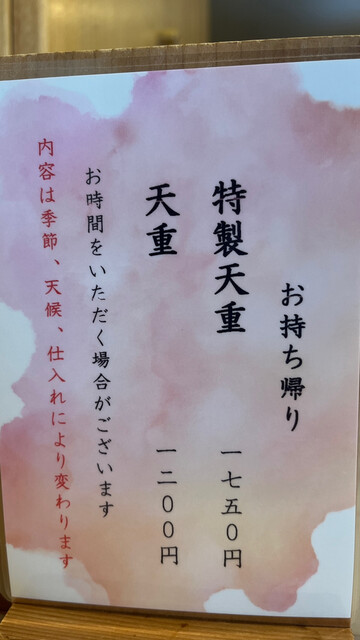 お持ち帰り
特製天重 一七五〇円
天重 一二〇〇円
お時間をいただく場合がございます
内容は季節、天候、仕入れにより変わります